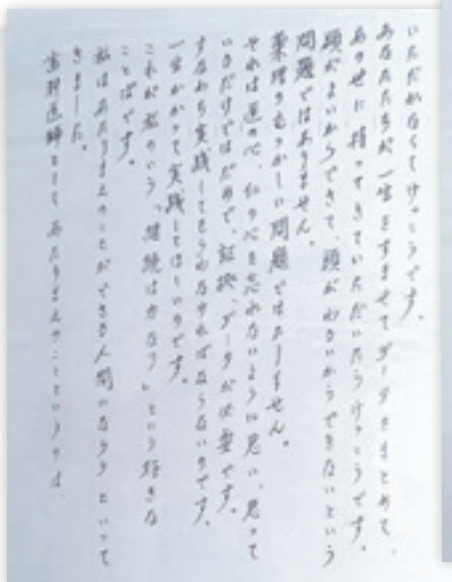 いただかなくてけっこうです。
あなたたちが一生をすませてデータをまとめて、
あのせに持ってきていただいたらけっこうです。
頭がよいからできて、頭がわるいからできないという
問題ではありません。
薬理のむつかしい問題ではありません。
それは道の心、仁の心を忘れないように思い、思って
いるだけではだめで、証拠、データが必要です。
すなわち実践してもらわなければならないのです。
一生かかって実践してほしいのです。
これが私のいう「継続は力なり」という好きな
ことばです。
私はあたりまえのことができる人間になろうといって
きました。
歯科医師として あたりまえのことというのは、